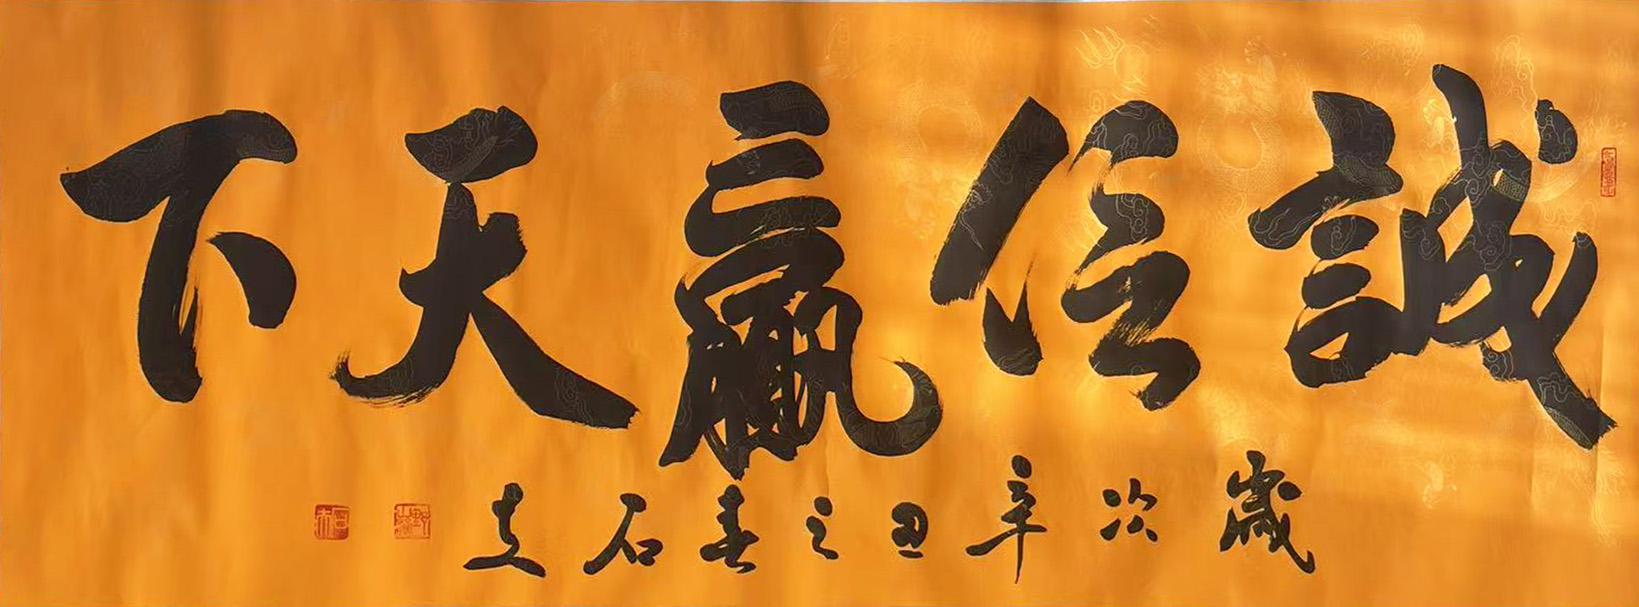 誠信贏天下
歲次辛丑之春石夫